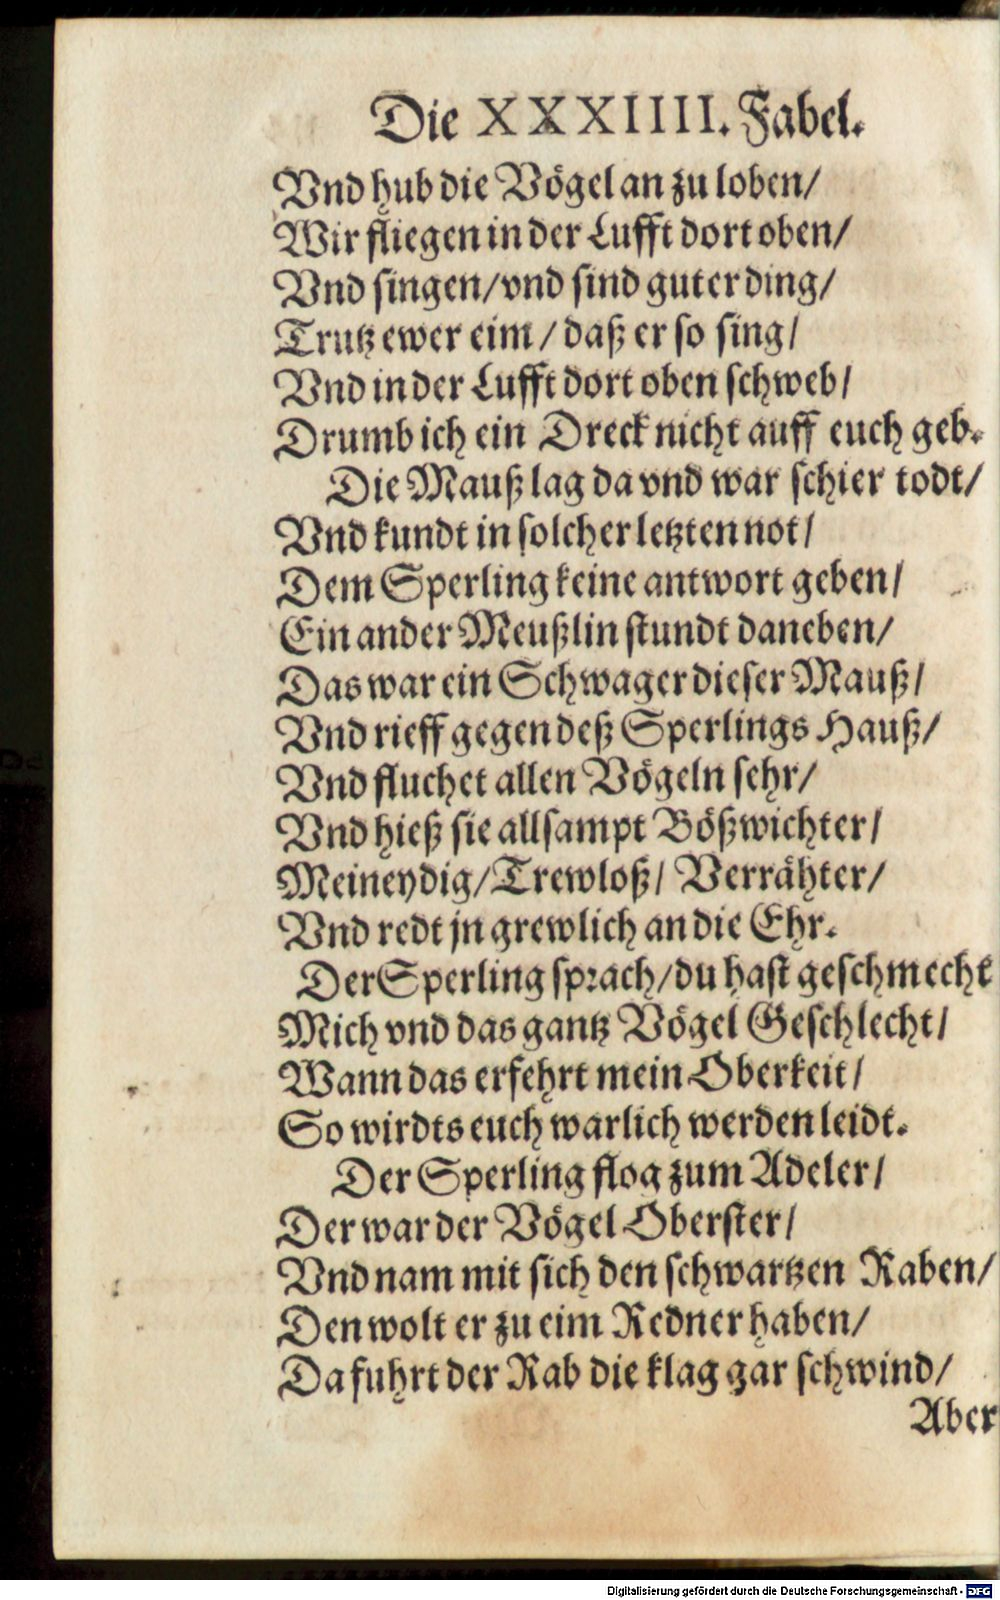 Die XXXIIII. Fabel.
Vnd hub die Vögel an zu loben/
Wir fliegen in der Lufft dort oben/
Vnd singen/vnd sind guter ding/
Trutz ewer eim / daß er so sing/
Vnd in der Lufft dort oben schweb/
Drumb ich ein Dreck nicht auff euch geb.
Die Mauß lag da vnd war schier todt/
Vnd kundt in solcher letzten not/
Dem Sperling keine antwort geben/
Ein ander Meußlin stundt daneben/
Das war ein Schwager dieser Mauß/
Vnd rieff gegen deß Sperlings Hauß/
Vnd fluchet allen Vögeln sehr/
Vnd hieß sie allsampt Bößwichter/
Meineydig/Trewloß/ Verrähter/
Vnd redt jn grewlich an die Ehr.
Der Sperling sprach/du hast geschmecht
Mich vnd das gantz Vögel Geschlecht/
Wann das erfehrt mein Oberkeit/
So wirdts euch warlich werden leidt.
Der Sperling flog zum Adeler/
Der war der Vögel Oberster/
Vnd nam mit sich den schwartzen Raben/
Den wolt er zu eim Redner haben/
Da fuhrt der Rab die klag gar schwind/
Aber
Digitalisierung gefördert durch die Deutsche Forschungsgemeinschaft - DFG